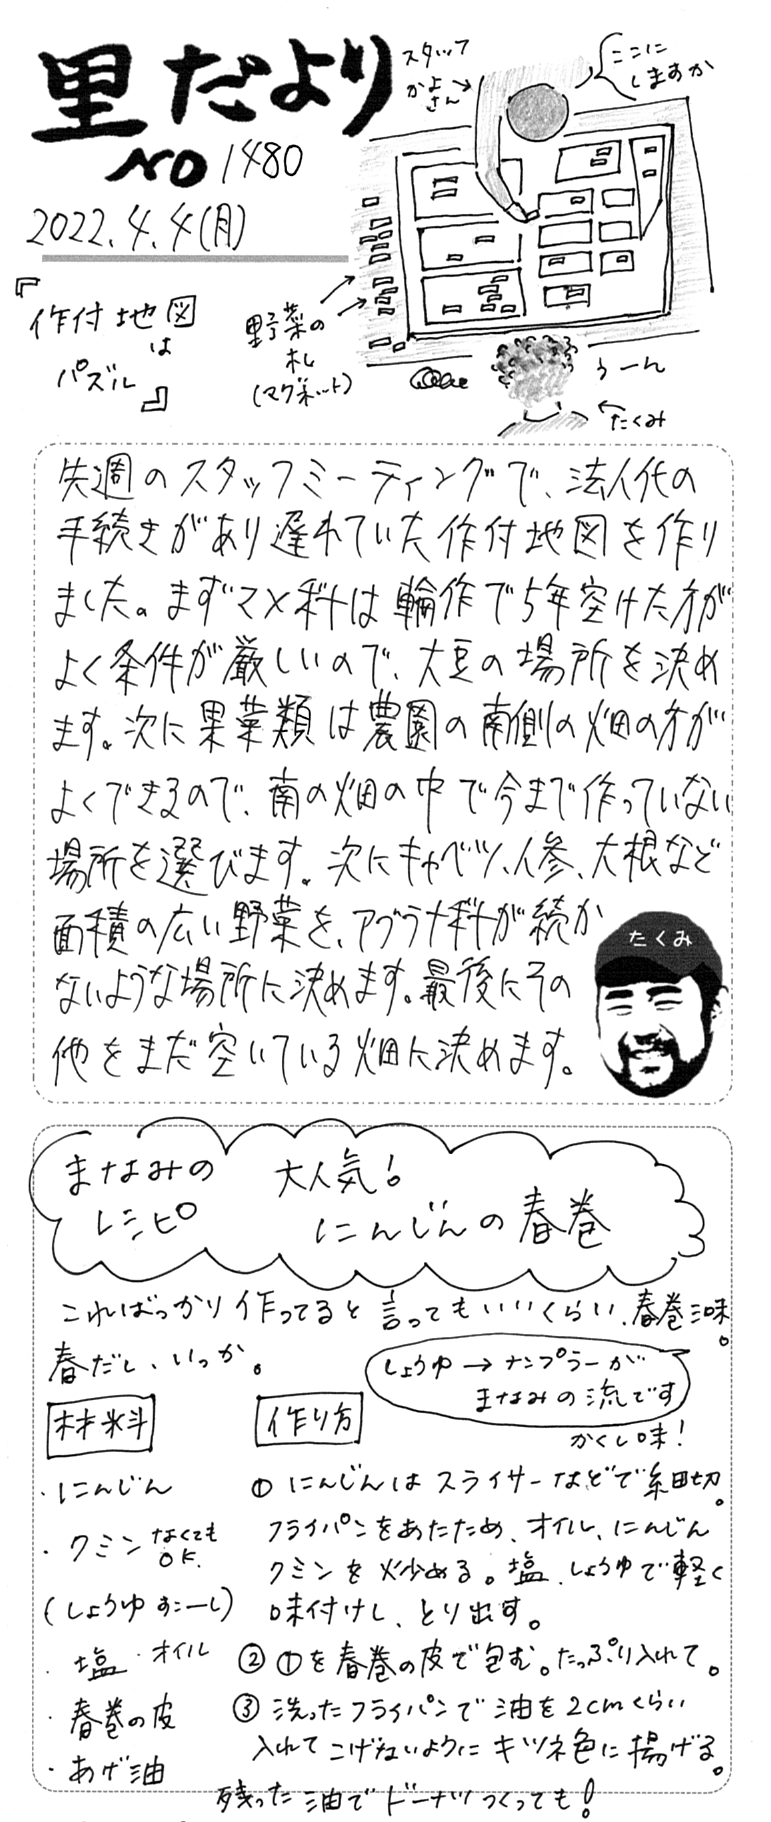 里だより
NO 1480
2022.4.4(月)
『作付地図
は
パズル』
スタッフ
かよ
さん
ここに
しますか
野菜の
札
(マグネット)
うーん
たくみ
先週のスタッフミーティングで、法人化の
手続きがあり遅れていた作付地図を作り
ました。まずマメ科は輪作で5年空けた方が
よく条件が厳しいので、大豆の場所を決め
ます。次に果菜類は農園の南側の畑の方が
よくできるので、南の畑の中で今まで作っていない
場所を選びます。次にキャベツ、人参、大根など
面積の広い野菜を、アブラナ科が続か
ないような場所に決めます。最後にその
他をまだ空いている畑に決めます。
たくみ
まなみの
レシピ
大人気!
にんじんの春巻
こればっかり作ってると言ってもいいくらい、春巻三昧。
春だし、いっか。
しょうゆ→ナンプラーが
まなみの流です
かくし味!
材料
・にんじん
・クミン なくても
OK.
(しょうゆ すこーし)
・塩 ・オイル
・春巻の皮
・あげ油
作り方
① にんじんはスライサーなどで細切。
フライパンをあたため、オイル、にんじん
クミンを炒める。塩、しょうゆで軽く
味付けし、とり出す。
② ①を春巻の皮で包む。たっぷり入れて。
③ 洗ったフライパンで油を2cmくらい
入れてこげないようにキツネ色に揚げる。
残った油でドーナツつくっても!